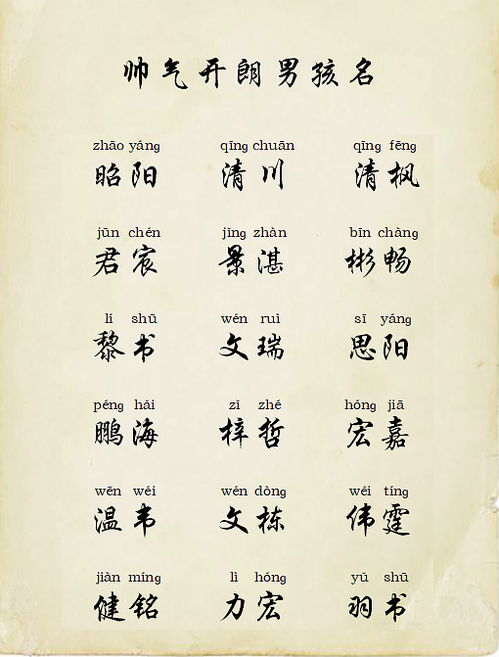 帅气开朗男孩名
zhāo yáng qīng chuān qīng fēng
昭阳 清川 清枫
jūn chén jǐng zhàn bīn chàng
君宸 景湛 彬畅
lí shū wén ruì sī yáng
黎书 文瑞 思阳
péng hǎi zǐ zhé hóng jiā
鹏海 梓哲 宏嘉
wēn wéi wén dòng wěi tíng
温韦 文栋 伟霆
jiàn míng lì hóng yǔ shū
健铭 力宏 羽书